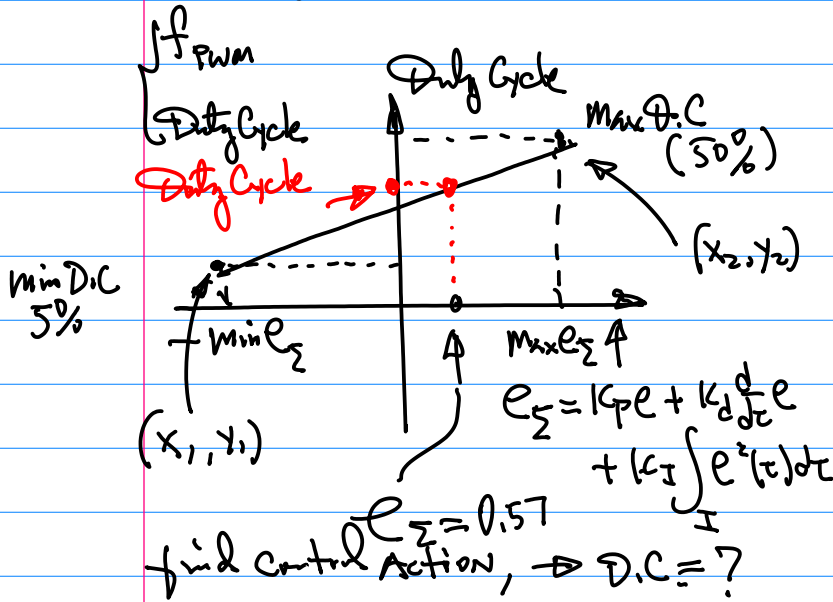 f PWM
Duty Cycle
Duty Cycle
Duty Cycle
Max D.C
(50%)
(x₂, y₂)
min D.C
5%
- min e_Σ
Max e_Σ
(x₁, y₁)
e_Σ = Kp e + K_d d/dτ e
+ K_I ∫_I e²(τ) dτ
e_Σ = 0.57
find control Action, → D.C = ?